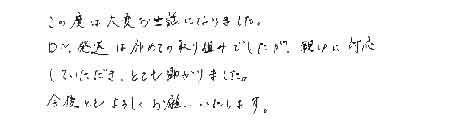 この度は大変お世話になりました。
DM発送は初めての取り組みでしたが、親切に対応
していただき、とても助かりました。
今後ともよろしくお願いいたします。